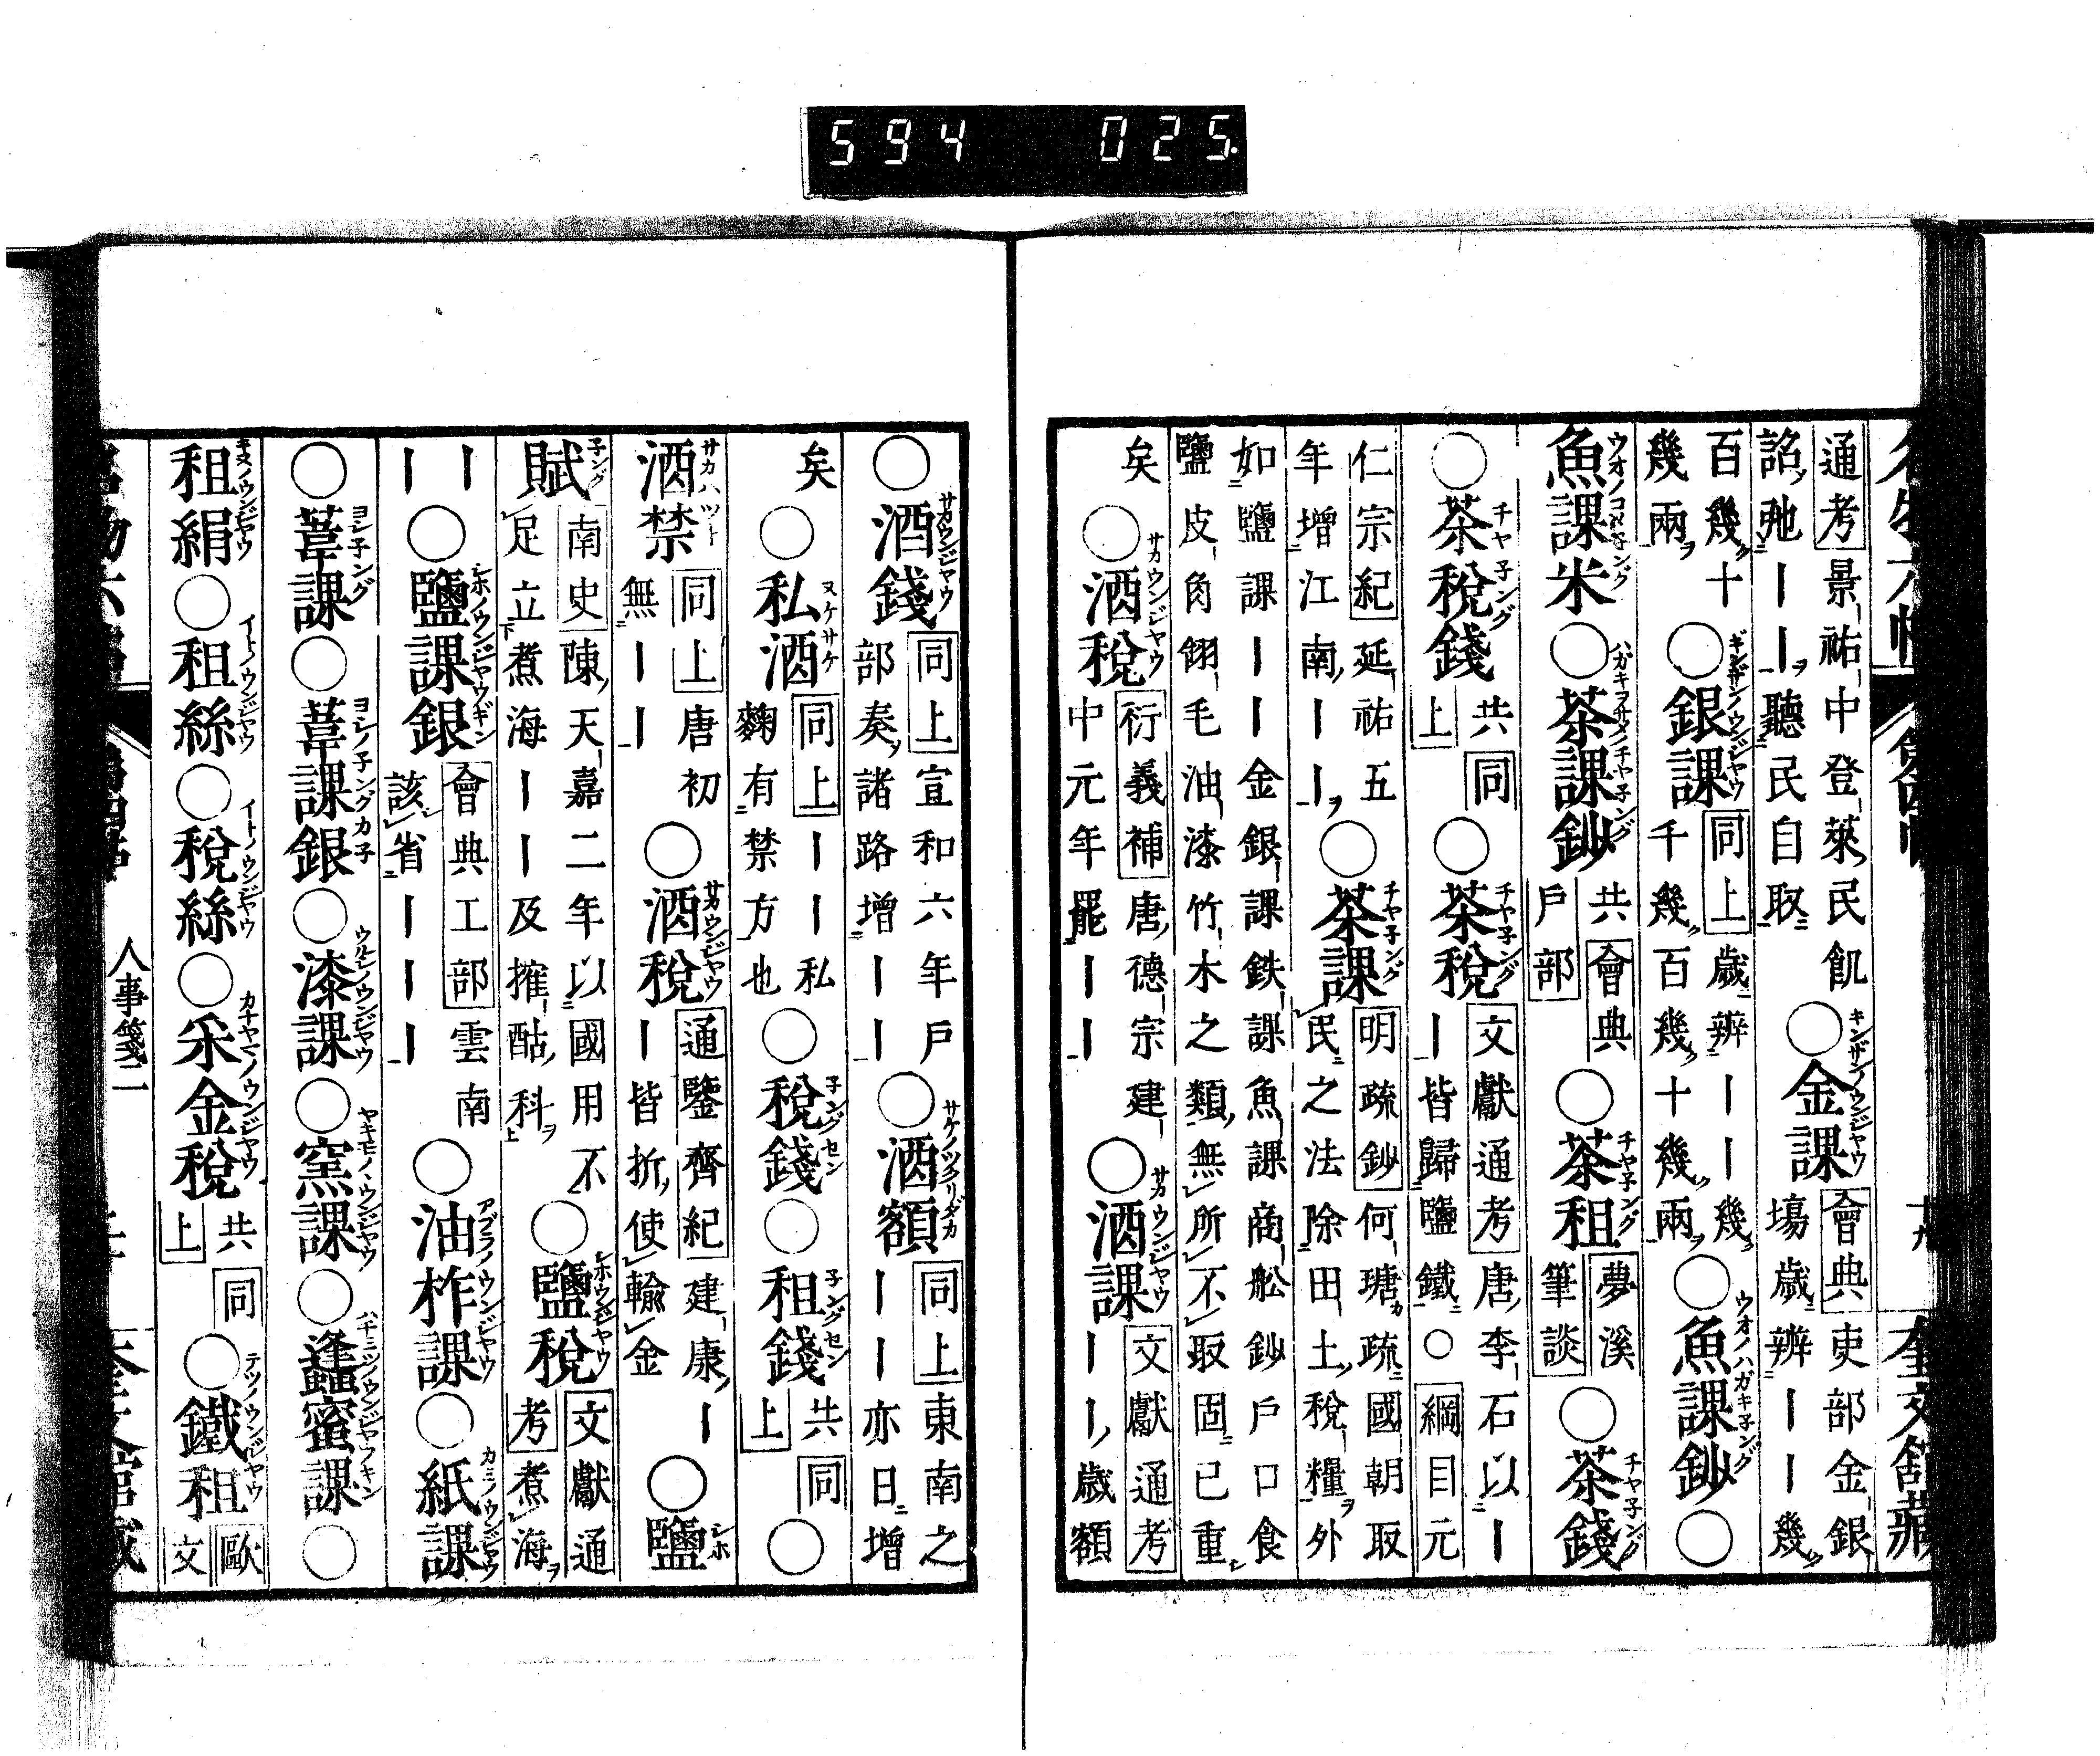 594 025
通考景祐中登萊民飢
詔弛――聽民自取
○金課會典吏部金銀
場歲辨――幾
百幾十
幾兩
○銀課同上歲辨――幾
千幾百幾十幾兩
○魚課鈔○
魚課米○茶課鈔共會典
戶部
○茶租夢溪
筆談
○茶錢
○茶稅錢共同
上
○茶稅文獻通考唐李石以―
―皆歸鹽鐵○綱目元
仁宗紀延祐五
年增江南――
○茶課明疏鈔何瑭疏國朝取
民之法除田土稅糧外
如鹽課――金銀課鉄課魚課商舩鈔戶口食
鹽皮角翎毛油漆竹木之類無所不取固已重
矣
○酒稅衍義補唐德宗建
中元年罷――
○酒課文獻通考
――歲額
○酒錢同上宣和六年戶
部奏諸路增――
○酒額同上東南之
――亦日增
矣
○私酒同上――私
麹有禁方也
○稅錢○租錢共同
上
○
酒禁同上唐初
無――
○酒稅通鑒齊紀建康―
―皆折使輸金
○鹽
賦南史陳天嘉二年以國用不
足立煮海――及搉酤科
○鹽稅文獻通
考煮海
―
―
○鹽課銀會典工部雲南
該省―――
○油柞課○紙課
○葦課○葦課銀○漆課○窯課○蜂蜜課○
租絹○租絲○稅絲○釆金稅共同
上
○鐵租歐
文
人事箋二